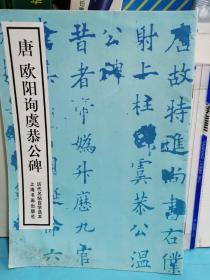 唐 欧阳询虞恭公碑
历代名帖自学选本
上海书画出版社
唐故特進尚書右僕
射上柱國虞恭公温
公碑
昔者帝媯升歷九官